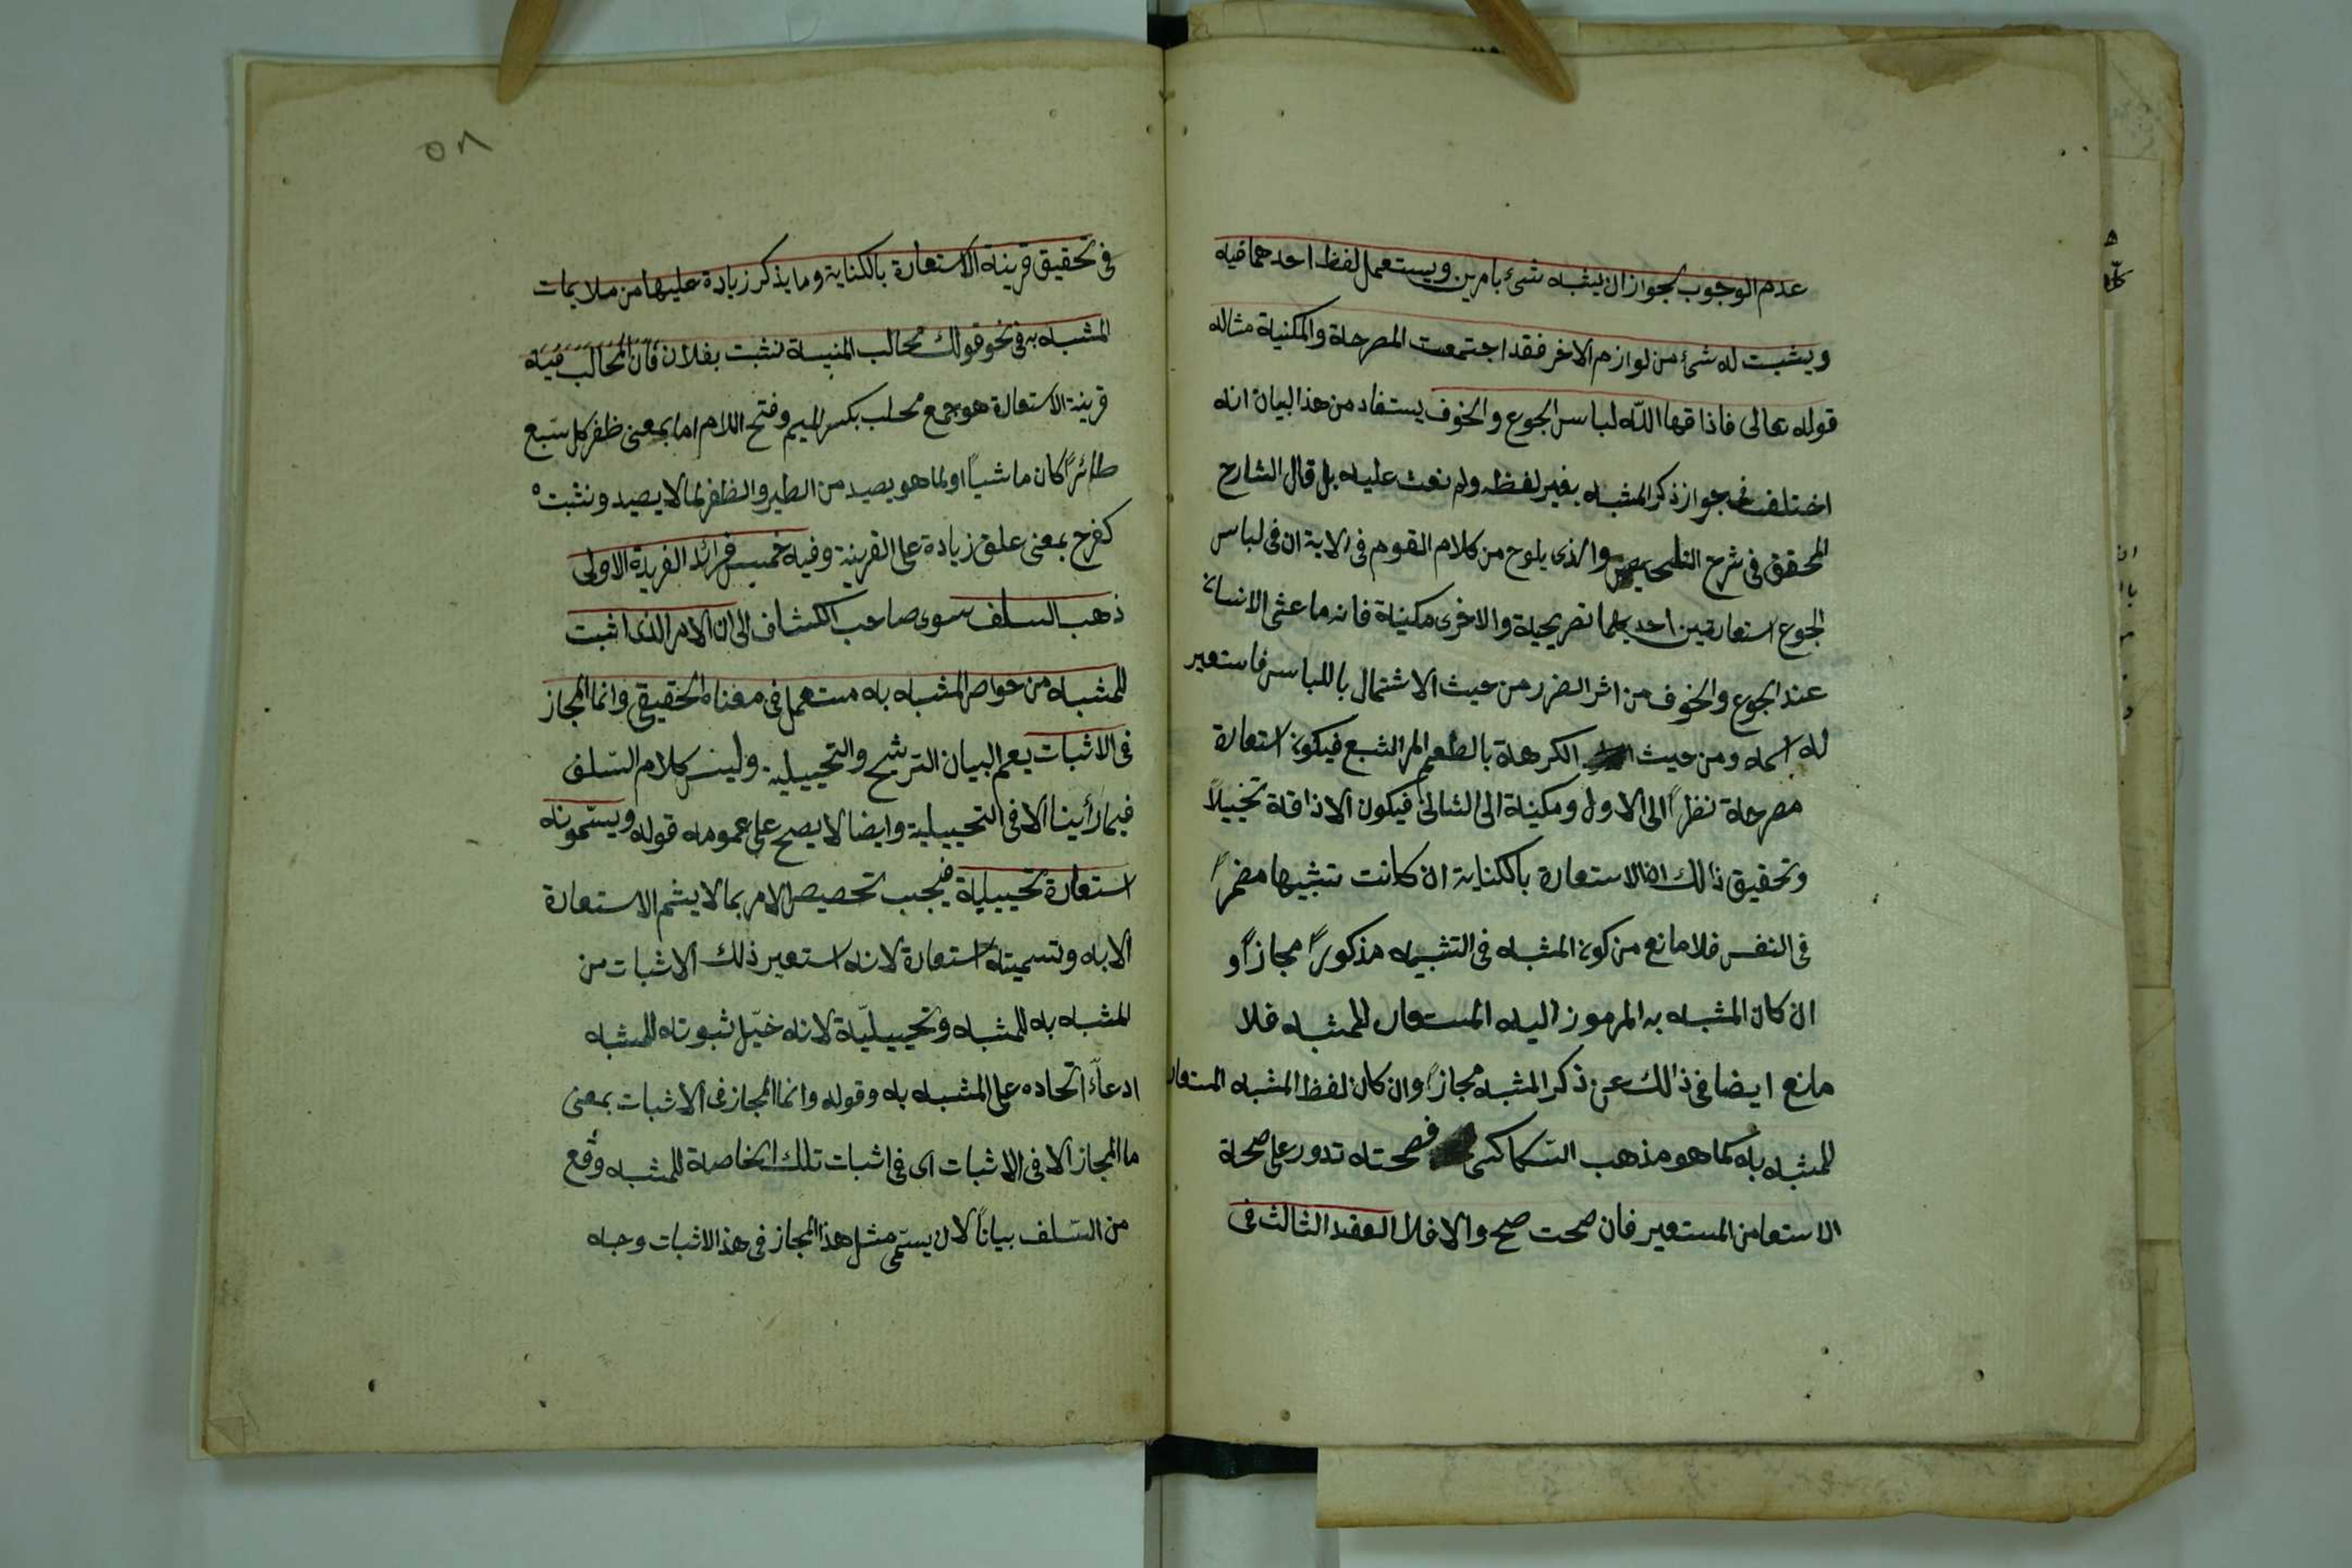 عدم الوجوب لجواز ان يشبه شئ بامرين ويستعمل لفظ احدهما فيه
ويثبت له شئ من لوازم الاخر فقد اجتمعت المصرحة والمكنية مثاله
قوله تعالى فاذاقها الله لباس الجوع والخوف يستفاد من هذا البيان انه
اختلف فى جواز ذكر المشبه بغير لفظه ولم نعث عليه بل قال الشارح
المحقق فى شرح التلخيص والذى يلوح من كلام القوم فى الاية ان فى لباس
الجوع استعارتين احديهما تصريحية والاخرى مكنية فانه ما عشى الانسان
عند الجوع والخوف من اثر الضرر من حيث الاشتمال باللباس فاستعير
له اسمه ومن حيث الكرهة بالطعم المر الشبع فيكون استعارة
مصرحة نظرًا الى الاول ومكنية الى الثانى فيكون الاذاقة تخييلاً
وتحقيق ذالك ان الاستعارة بالكناية ان كانت تشبيها مضمرًا
فى النفس فلا مانع من كون المشبه فى التشبيه مذكورًا مجازًا و
ان كان المشبه به المرموز اليه المستعار للمشبه فلا
مانع ايضا فى ذالك عن ذكر المشبه مجازًا وان كان لفظ المشبه المستعار
للمشبه به كما هو مذهب السكاكى فصحته تدور على صحة
الاستعا من المستعير فان صحت صح والا فلا العقد الثالث فى
٥٨
فى تحقيق قرينة الاستعارة بالكناية وما يذكر زيادة عليها من ملايمات
المشبه به فى نحو قولك مخالب المنية نشبت بفلان فان المخالب فيه
قرينة الاستعارة هو جمع مخلب بكسر الميم وفتح اللام اما بمعنى ظفر كل سبع
طائرًا كان ماشيًا او لما هو يصيد من الطير والظفر لما لا يصيد ونشبت
كفرح بمعنى علق زيادة على القرينة وفيه خميس فرائد الفريدة الاولى
ذهب السلف سوى صاحب الكشاف الى ان الامر الذى اثبت
للمشبه من خواص المشبه به مستعمل فى معناه الحقيقى وانما المجاز
فى الاثبات يعم البيان الترشح والتخييلية وليس كلام السلف
فيما رأينا الا فى التخييلية وايضا لا يصح على عمومه قوله ويسمونه
استعارة تخييلية فيجب تخصيص الامر بما لا يشم الاستعارة
الا به وتسميته استعارة لانه استعير ذلك الاثبات من
المشبه به للمشبه وتخييليّة لانه خيّل ثبوته للمشبه
ادعاءً اتحاده على المشبه به وقوله وانما المجاز فى الاثبات بمعنى
ما المجاز الا فى الاثبات اى فى اثبات تلك الخاصة للمشبه وقع
من السلف بيانًا لان يسمّى مثل هذا المجاز فى هذ الاثبات وجه